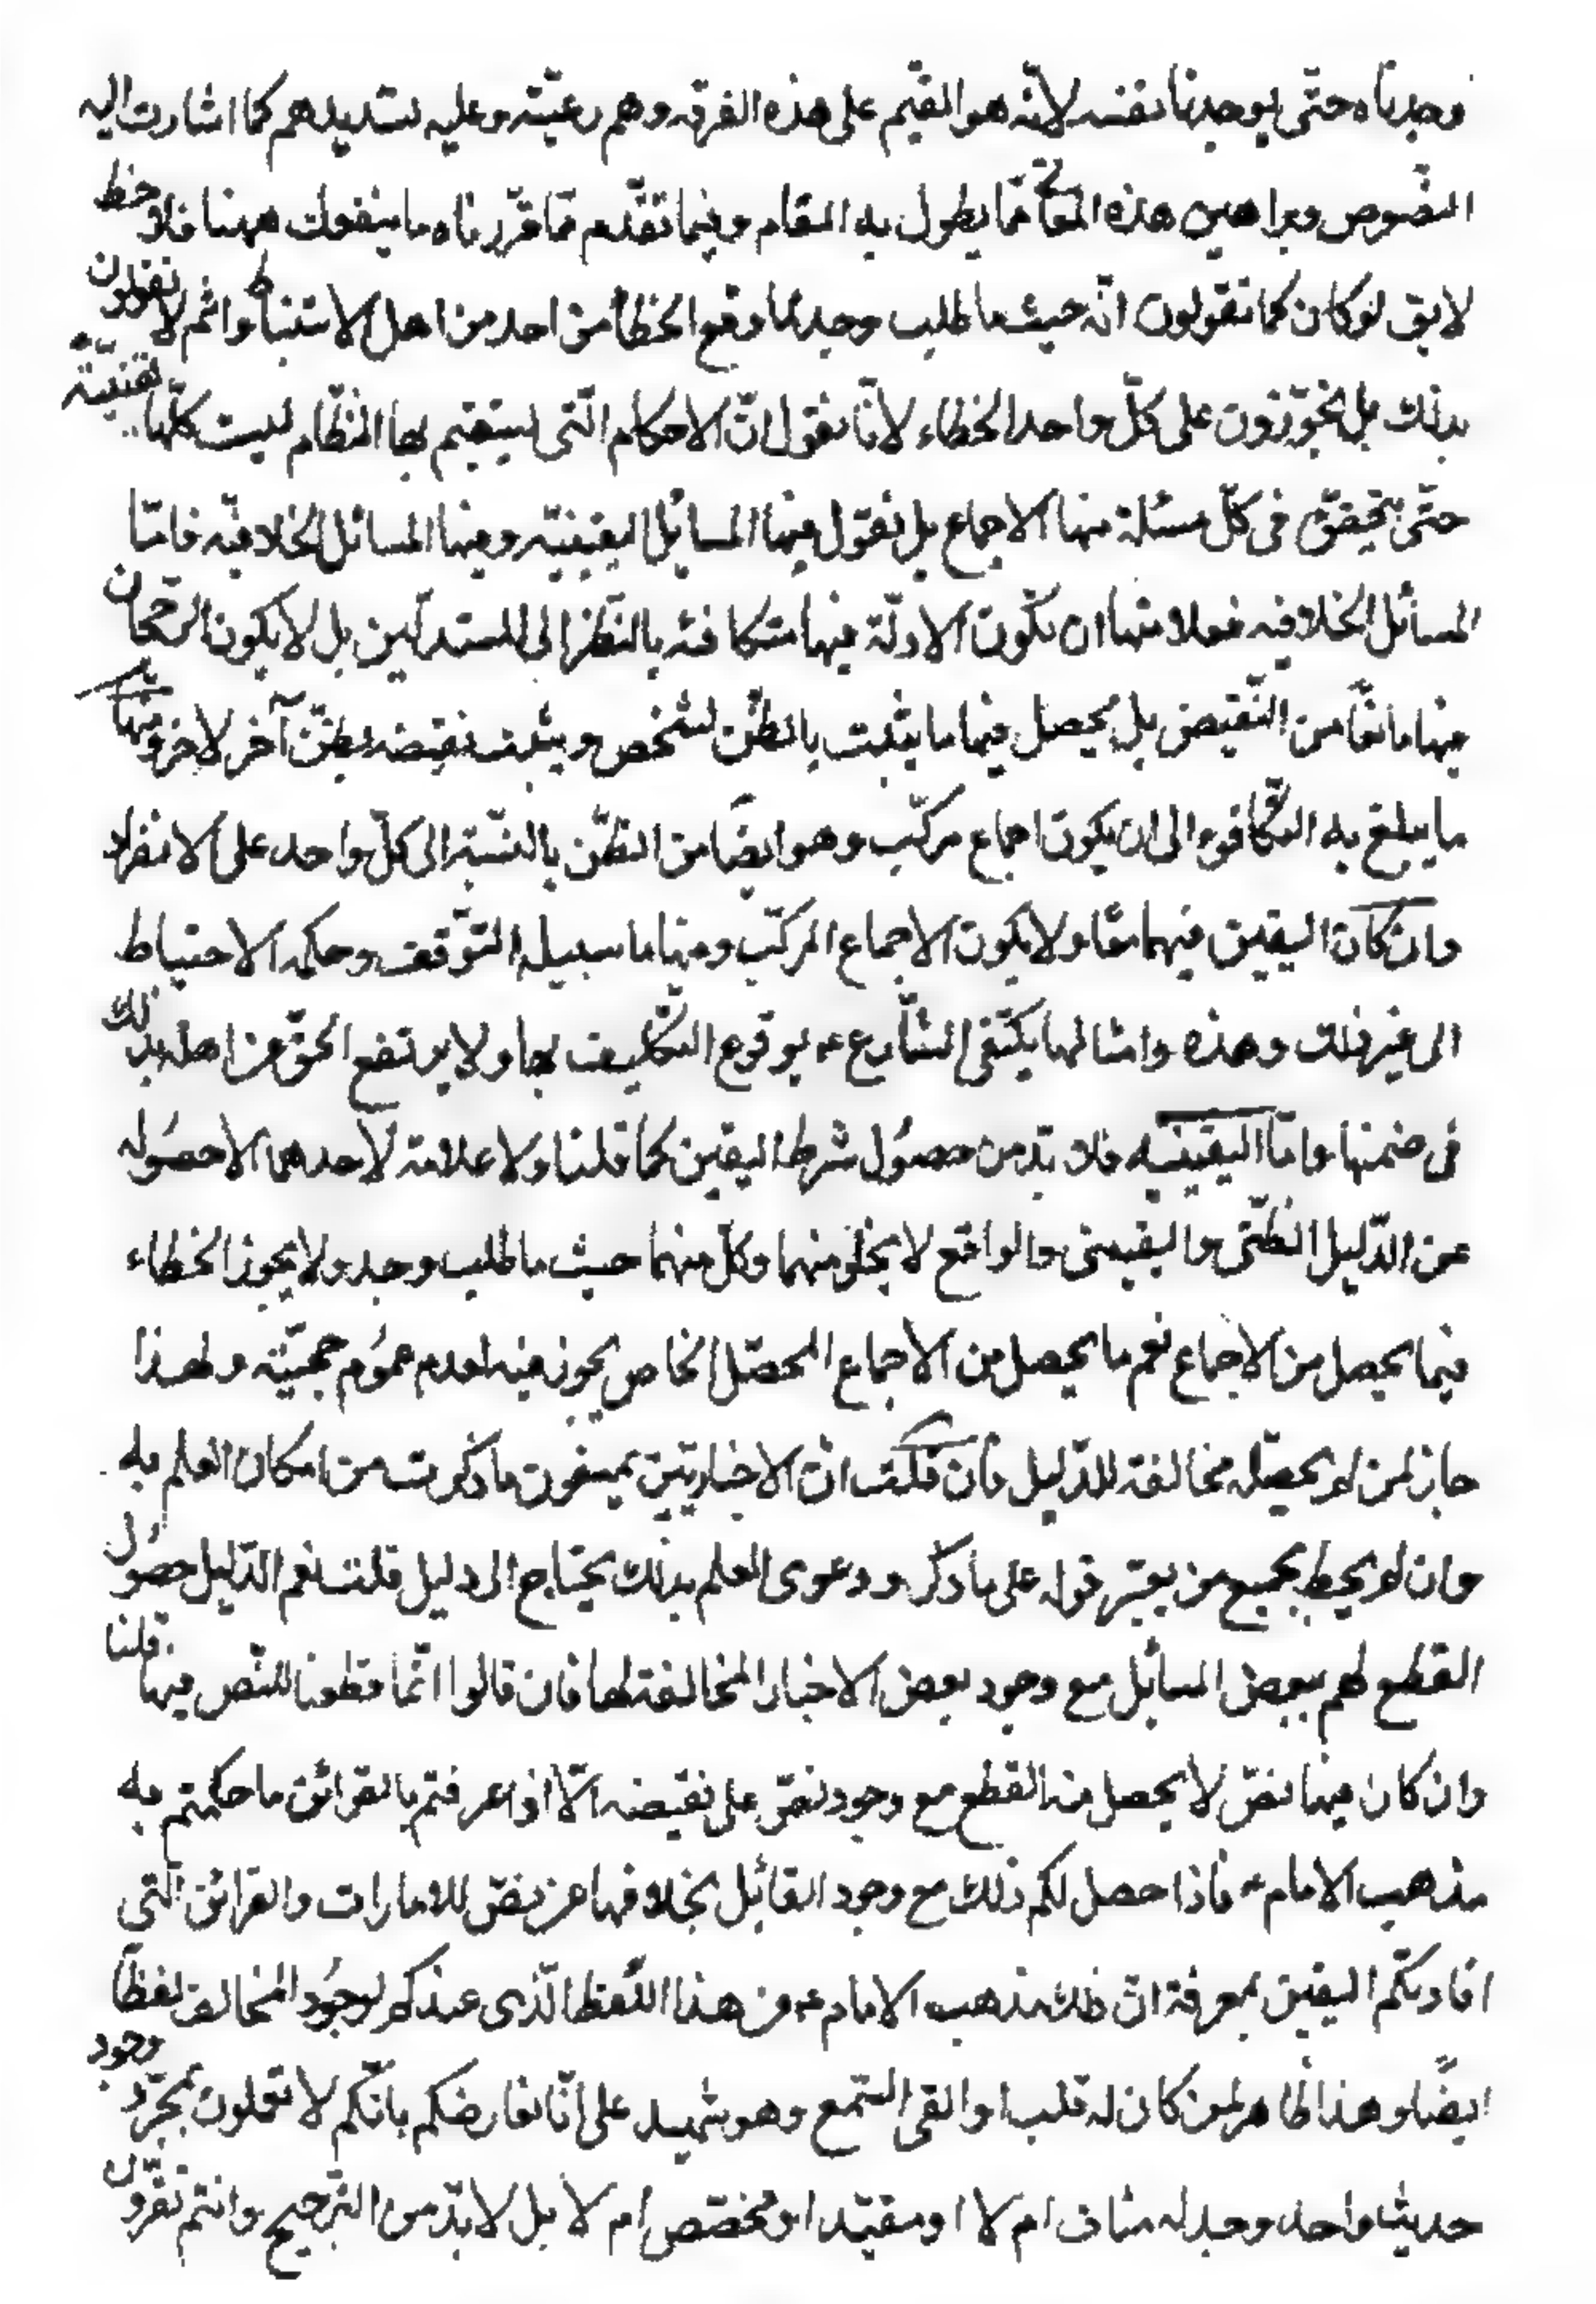 وجدناه حتى يوجدنا نفسه لانه هو القيم على هذه الفرقه وهم رعيته وعليه تسديدهم كما اشارت اليه
النصوص وبراهين هذه المقامات مما يطول به المقام وفيما تقدم مما قررناه ما ينفعك ههنا فلاحظ
لا يق لو كان كما تقولون انه حيث ما طلب وجد لما وقع الخطأ من احد من اهل الاستنباط وانتم لا تقولون
بذلك بل تجوزون على كل واحد الخطاء لانا نقول ان الاحكام التى يستقيم بها النظام ليست كلها يقينية
حتى يتحقق فى كل مسئلة منها الاجماع بل نقول فيها المسائل اليقينيه وفيها المسائل الخلافيه فامّا
المسائل الخلافيه فعلامتها ان تكون الادلّة فيها متكافئه بالنظر الى المستدلين بل لا يكون الرجحان
فيها مانعا من النقيض بل يحصل فيها ما يثبت بالظن لشخص ويثبت نقيضه بظنّ آخر لاخر ومنها
ما يبلغ به التكافوء الى ان يكون اجماع مركّب وهو ايضا من الظنّ بالنسبة الى كلّ واحد على الانفراد
وان كان اليقين فيهما معا ولا يكون الاجماع المركّب ومنها ما سبيله التوقف وحكمه الاحتياط
الى غير ذلك وهذه وامثالها يكتفى الشارع ع بوقوع التكليف بها ولا يرتفع الحق عن اهله بذلك
فى ضمنها وامّا اليقينيه فلا بدّ من حصول شرط اليقين كما قلنا ولا علامة لاحدهما الا حصوله
عن الدّليل الظنّى واليقينى والواقع لا يخلو منهما وكل منهما حيث ما طلب وجد ولا يجوز الخطاء
فيما يحصل من الاجماع نعم ما يحصل من الاجماع المحصّل الخاص يجوز فيه لعدم عموم حجيّته ولهذا
جاز لمن لم يحصّله مخالفته للدّليل فان قلت انّ الاخباريّين يمنعون ما ذكرت من امكان العلم به
وان لم يحط بجميع من يعتبر قوله على ما ذكر ودعوى العلم بذلك يحتاج الى دليل قلت نعم الدّليل حصول
القطع لهم ببعض المسائل مع وجود بعض الاخبار المخالفة لها فان قالوا انّما قطعنا للنّص فيها قلنا
وان كان فيها نصّ لا يحصل منه القطع مع وجود نصّ على نقيضه الّا اذا عرفتم بالقرائن ما حكمتم به
مذهب الامام ع فاذا حصل لكم ذلك مع وجود القائل بخلافها عن نصّ للامارات والقرائن التي
افادتكم اليقين بمعرفة انّ ذلك مذهب الامام ع من هذا اللّفظ الّذى عندكم لوجود المخالف لفظاً
ايضًا وهذا ظاهر لمن كان له قلب او القى السّمع وهو شهيد على انّا نعارضكم بانّكم لا تعملون بمجرّد وجود
حديث واحد وجد له مناف ام لا او مقيّد او مخصّص ام لا بل لا بدّ من الترجيح وانتم تقرّون